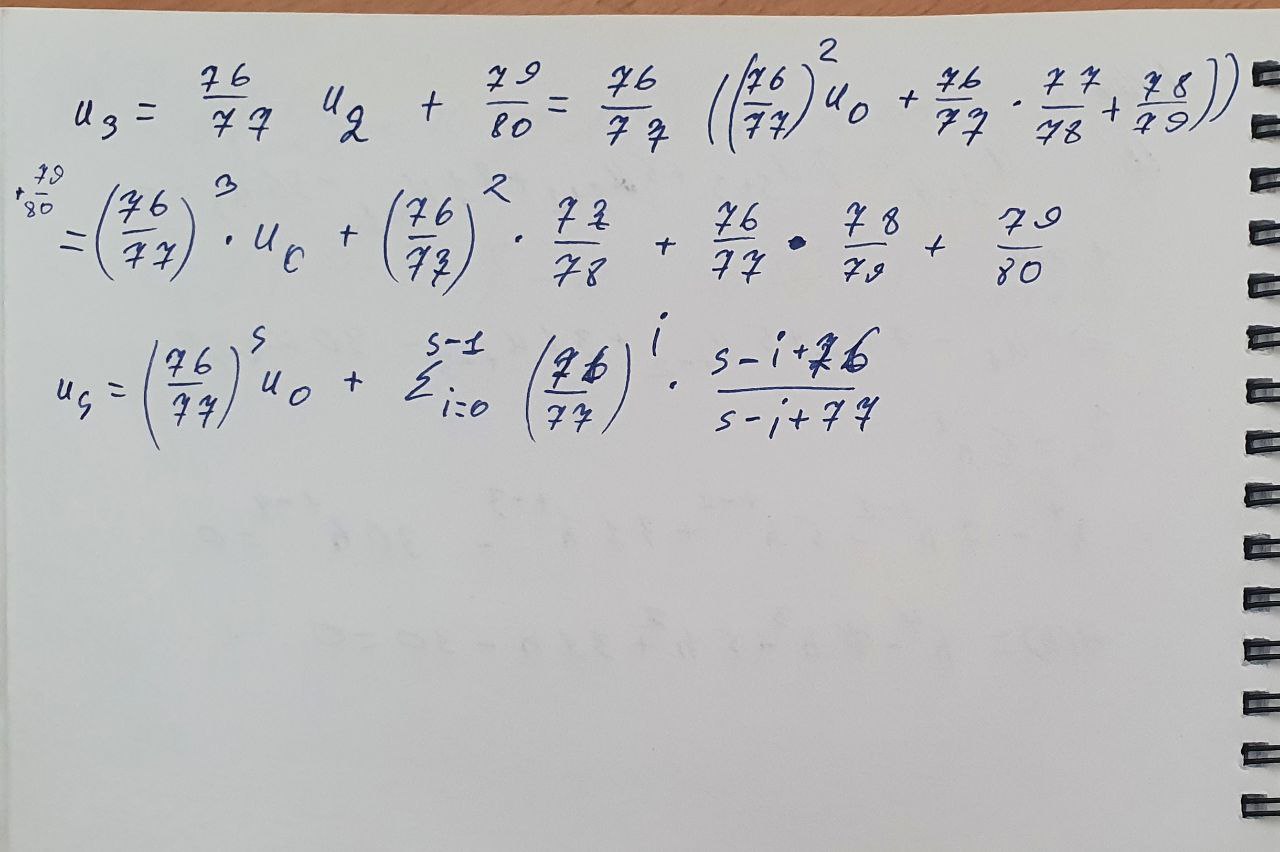 u₃ = 76/77 u₂ + 79/80 = 76/77 ((76/77)² u₀ + 76/77 · 77/78 + 78/79))
+ 79/80
= (76/77)³ · u₀ + (76/77)² · 77/78 + 76/77 · 78/79 + 79/80
uₛ = (76/77)ˢ u₀ + Σ_{i=0}^{s-1} (76/77)ⁱ · (s-i+76)/(s-i+77)